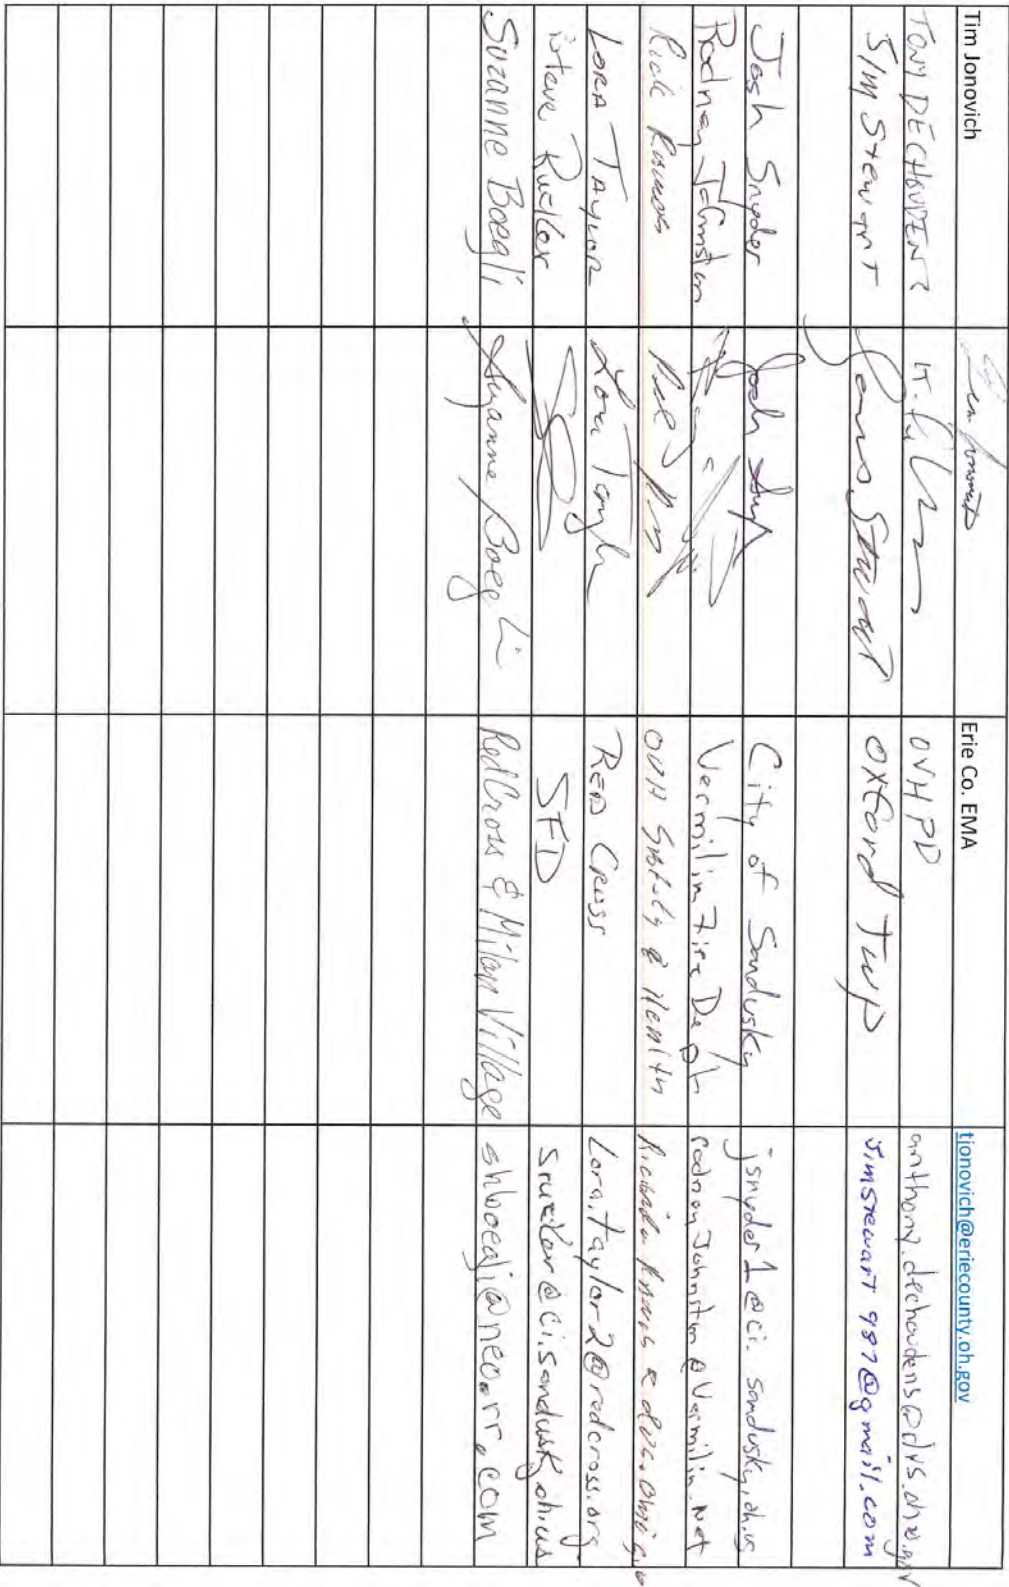 Tim Jonovich Erie Co. EMA tionovich@eriecounty.oh.gov
TONY DECHOUDENS OVHPD anthony.dechoudens@dvs.ohio.gov
JIM Stewart James Stewart Oxford Twp Jimstewart987@gmail.com
Josh Snyder Josh City of Sandusky jsnyder1@ci.sandusky.oh.us
Rodney Johnston Vermilion Fire Dept rodneyJohnston@Vermilion.Net
Rick OVH Safety & Health
LORA TAYLOR Lora Taylor RED CROSS Lora.taylor2@redcross.org
Steve SFD
Suzanne Boegli Suzanne Boegli Red Cross & Milan Village shboegli@neo.rr.com